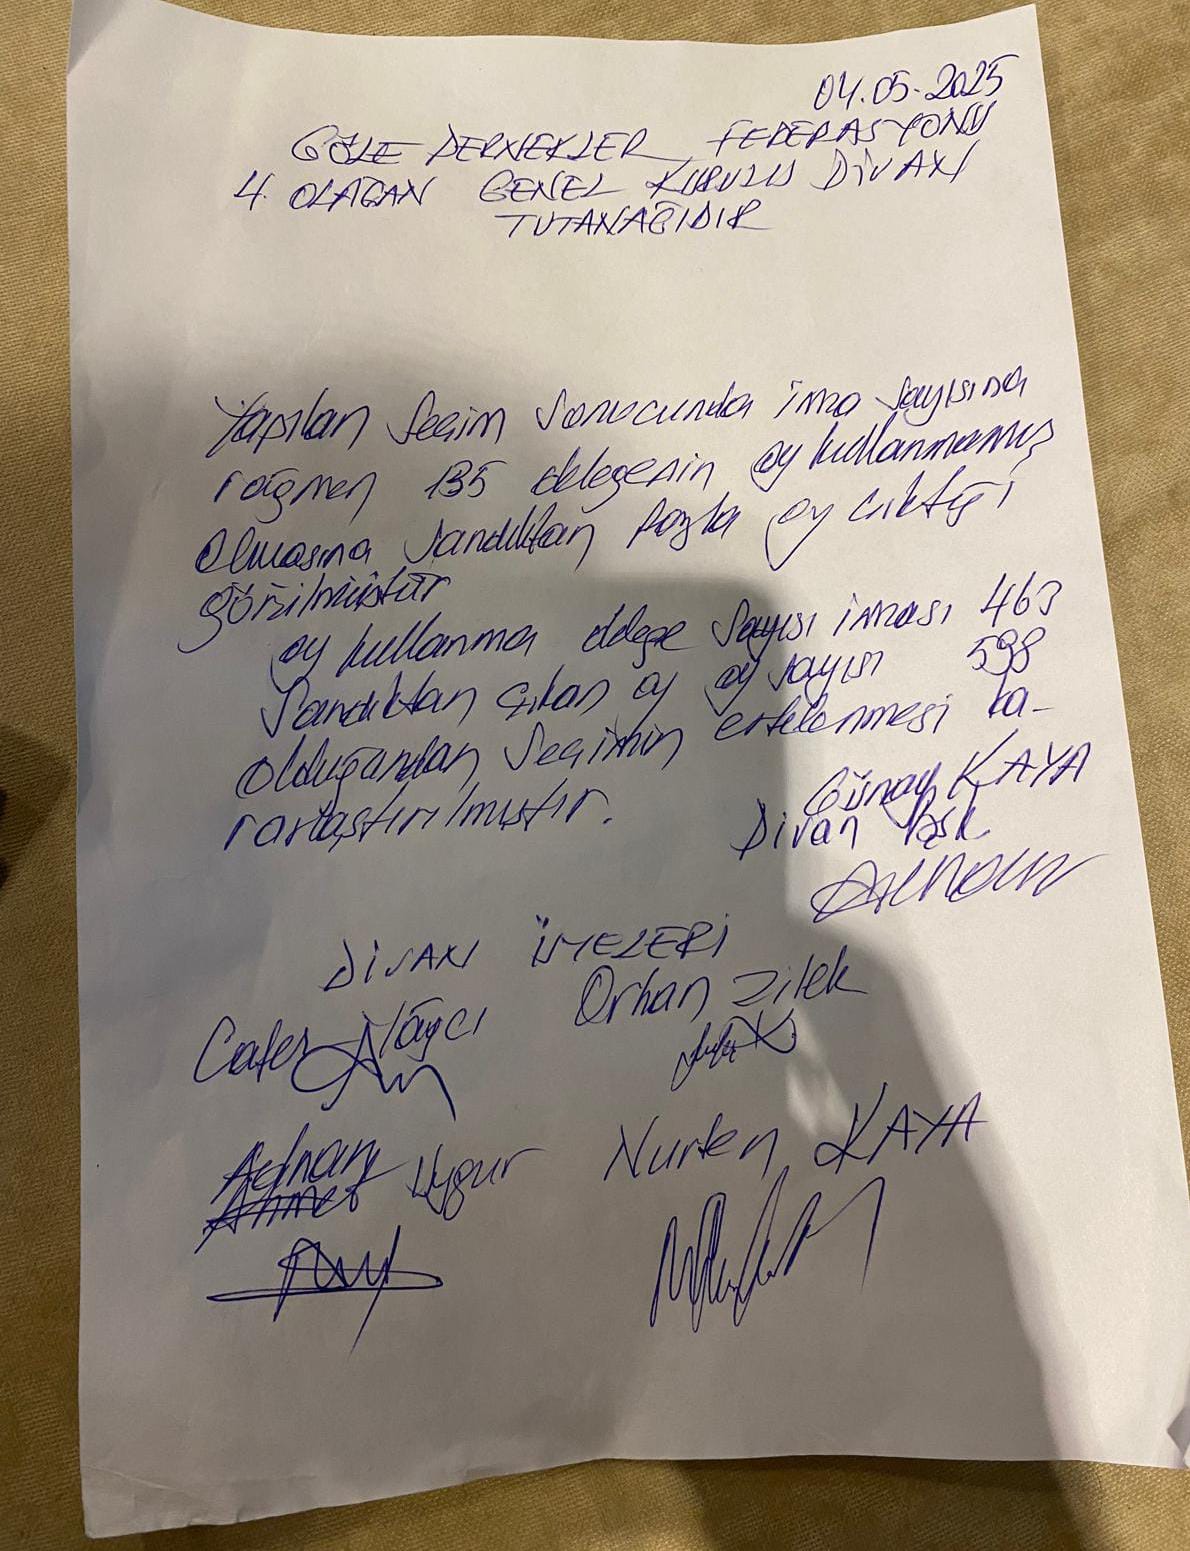 04.05.2025
GÖLE DERNEKLER FEDERASYONU
4. OLAĞAN GENEL KURULU DİVAN
TUTANAĞIDIR
Yapılan Seçim Sonucunda imza Sayısına
rağmen 135 delegenin oy kullanmamış
olmasına Sandıktan fazla oy çıktığı
görülmüştür
oy kullanma delege Sayısı imzası 463
Sandıktan çıkan oy oy sayısı 598
olduğundan Seçimin ertelenmesi ka-
rarlaştırılmıştır.
Günay KAYA
Divan Bşk
DİVAN ÜYELERİ
Cafer Orhan Zilek
Adnan Uygur Nurten KAYA
Ahmet